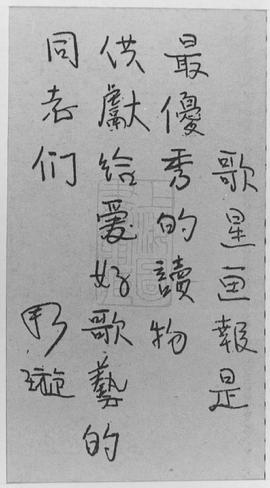 歌星画報是
最優秀的讀物
供獻給爱好歌藝的
同志们